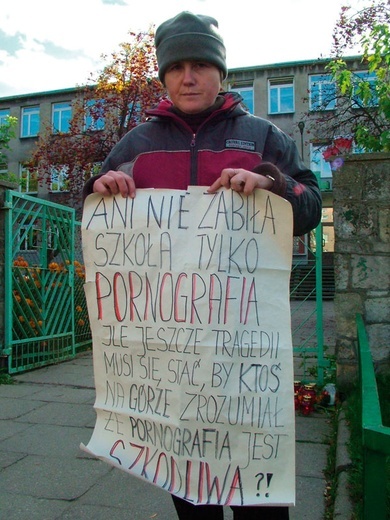 ANI NIE ZABIŁA
SZKOŁA TYLKO
PORNOGRAFIA
ILE JESZCZE TRAGEDII
MUSI SIĘ STAĆ, BY KTOŚ
NA GÓRZE ZROZUMIAŁ
ŻE PORNOGRAFIA JEST
SZKODLIWA ?!